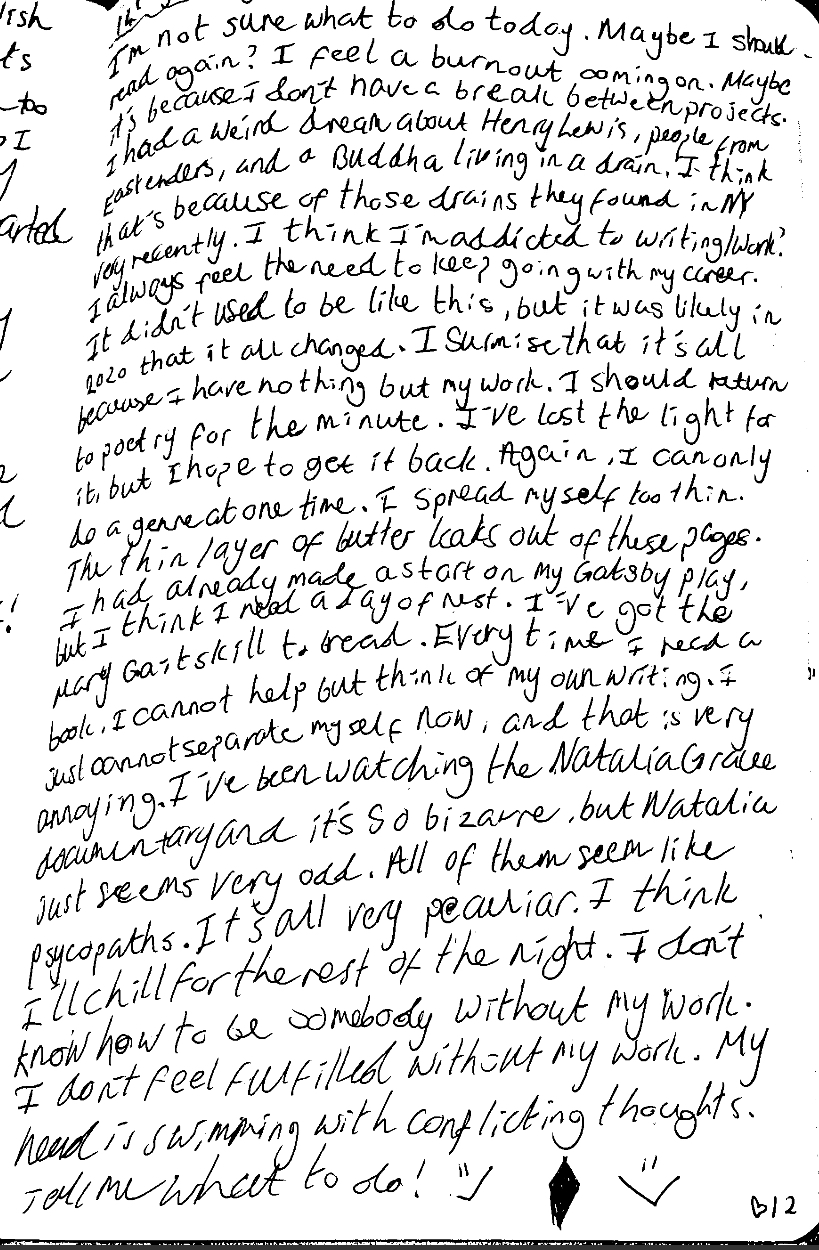 ish
ts
I
arted
I'm not sure what to do today. Maybe I should
read again? I feel a burnout coming on. Maybe
it's because I don't have a break between projects.
I had a weird dream about Henry Lewis, people from
Eastenders, and a Buddha living in a drain. I think
that's because of those drains they found in NY
very recently. I think I'm addicted to writing/work?
I always feel the need to keep going with my career.
It didn't used to be like this, but it was likely in
2020 that it all changed. I surmise that it's all
because I have nothing but my work. I should return
to poetry for the minute. I've lost the light for
it, but I hope to get it back. Again, I can only
do a genre at one time. I spread myself too thin.
The thin layer of butter leaks out of these pages.
I had already made a start on my Gatsby play,
but I think I need a day of rest. I've got the
Mary Gaitskill to read. Every time I read a
book, I cannot help but think of my own writing. I
just cannot separate myself now, and that is very
annoying. I've been watching the Natalia Grace
documentary and it's so bizarre, but Natalia
just seems very odd. All of them seem like
psycopaths. It's all very peculiar. I think
I'll chill for the rest of the night. I don't
know how to be somebody without my work.
I don't feel fulfilled without my work. My
head is swimming with conflicting thoughts.
Tell me what to do!